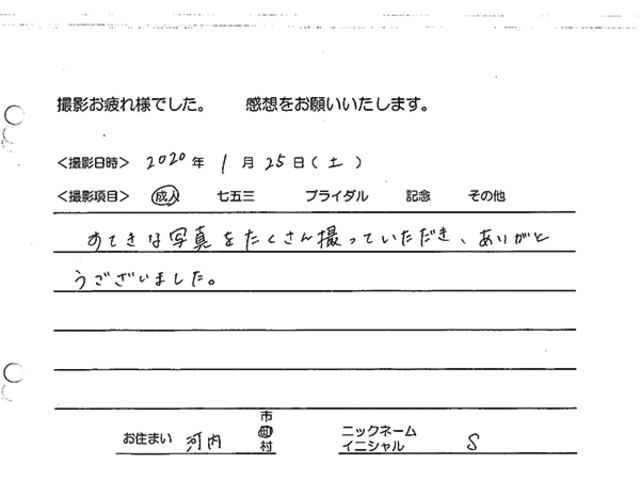 撮影お疲れ様でした。 感想をお願いいたします。
<撮影日時> 2020年 1月 25日(土)
<撮影項目> 成人 七五三 ブライダル 記念 その他
すてきな写真をたくさん撮っていただき、ありがと
うございました。
お住まい 河内 市町村
ニックネーム
イニシャル S